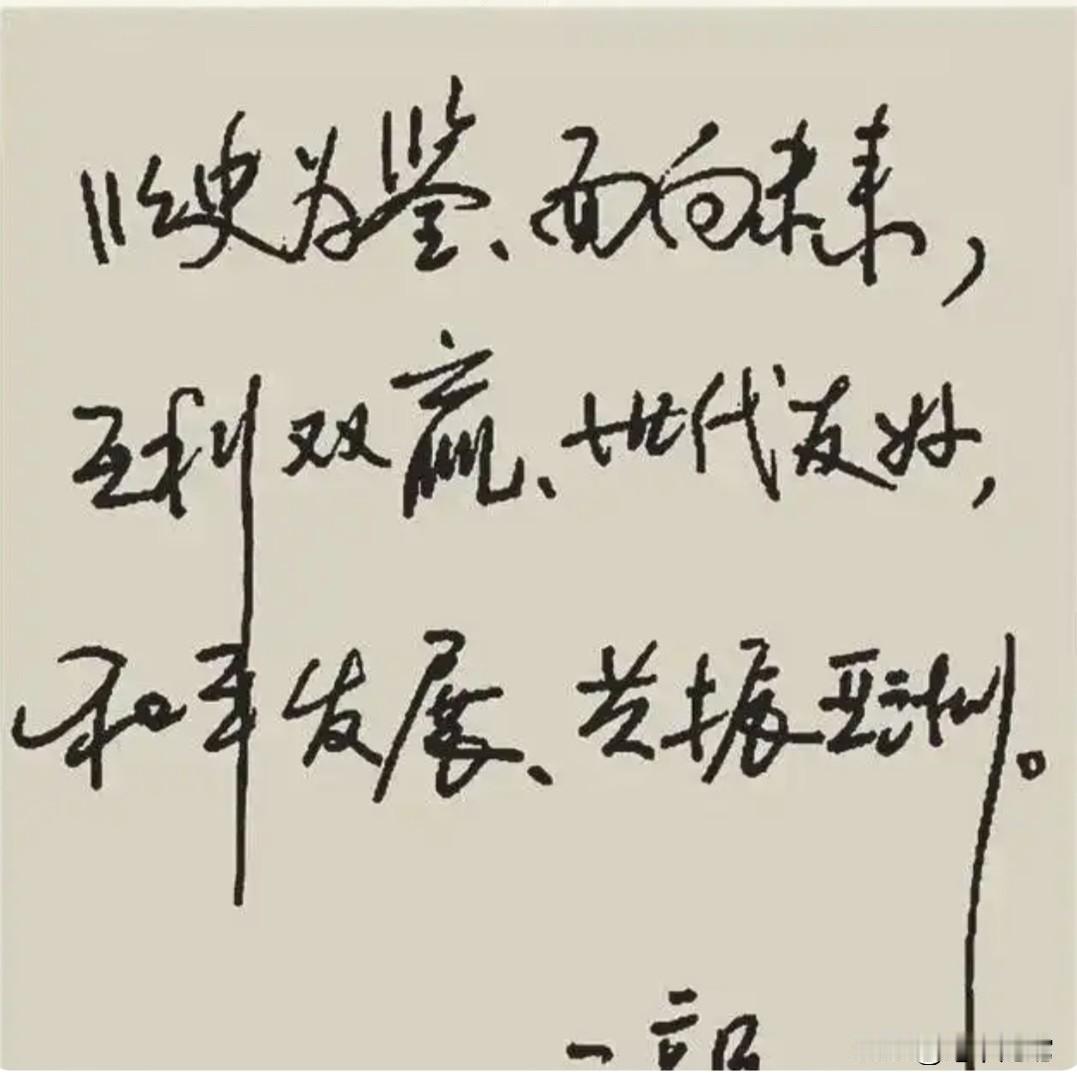 以史为鉴、面向未来，
互利双赢、世代友好，
和平发展、共振亚洲。